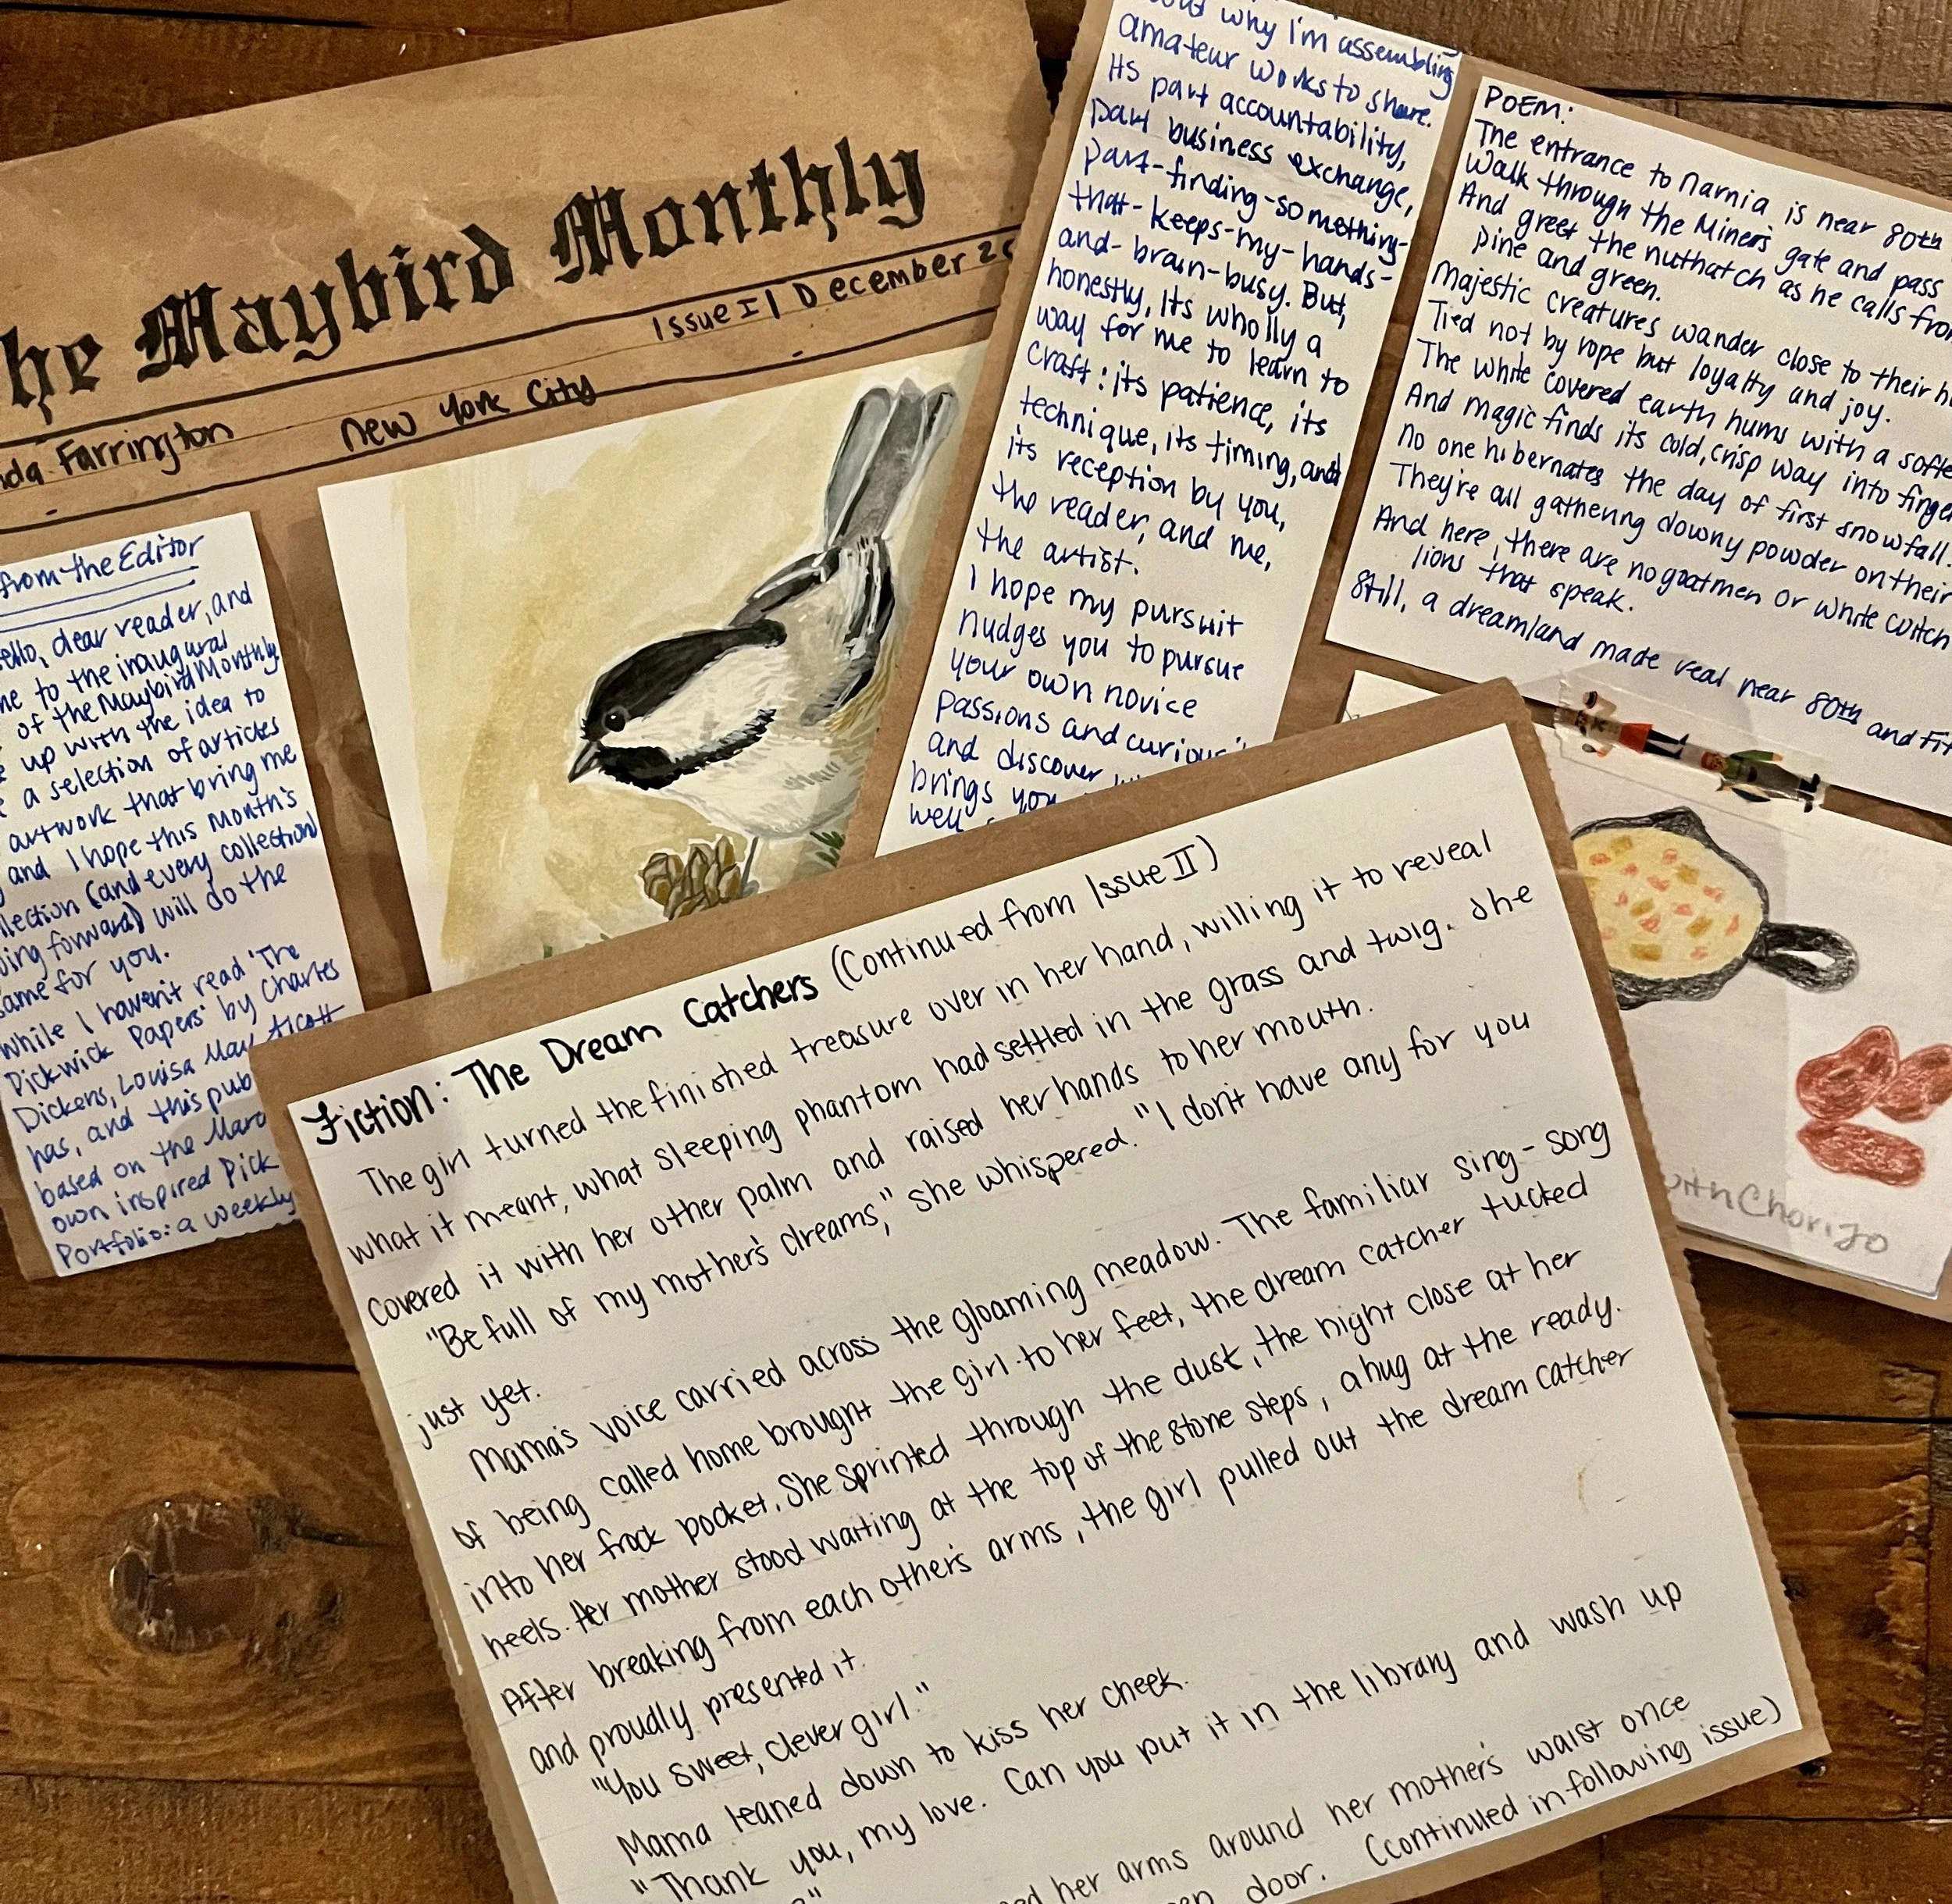 The Maybird Monthly
Issue I | December
Farrington
New York City
from the Editor
dear reader, and
to the inaugural
of the Maybird Monthly
up with the idea to
a selection of articles
artwork that bring me
and I hope this month's
(and every collection
forward) will do the
same for you.
While I haven't read 'The
Pickwick Papers' by Charles
Dickens, Louisa May Alcott
has, and this
based on the
own inspired
Portfolio: a weekly
why I'm assembling
amateur works to share.
Its part accountability,
part business exchange,
part-finding-something-
that-keeps-my-hands-
and-brain-busy. But,
honestly, its wholly a
way for me to learn to
craft: its patience, its
technique, its timing, and
its reception by you,
the reader, and me,
the artist.
I hope my pursuit
nudges you to pursue
your own novice
passions and
and discover
brings you
well
POEM:
The entrance to Narnia is near 80th
Walk through the Miners gate and pass
And greet the nuthatch as he calls from
pine and green.
Majestic creatures wander close to their
Tied not by rope but loyalty and joy.
The white covered earth hums with a
And magic finds its cold, crisp way into
No one hibernates the day of first snowfall.
They're all gathering downy powder on their
And here, there are no goatmen or white witch
lions that speak.
Still, a dreamland made real near 80th and
with Chorizo
Fiction: The Dream Catchers (Continued from Issue II)
The girl turned the finished treasure over in her hand, willing it to reveal
what it meant, what sleeping phantom had settled in the grass and twig. She
covered it with her other palm and raised her hands to her mouth.
"Be full of my mother's dreams," she whispered. "I don't have any for you
just yet.
Mama's voice carried across the gloaming meadow. The familiar sing-song
of being called home brought the girl to her feet, the dream catcher tucked
into her frock pocket. She sprinted through the dust, the night close at her
heels. Her mother stood waiting at the top of the stone steps, a hug at the ready.
After breaking from each other's arms, the girl pulled out the dream catcher
and proudly presented it.
"You sweet, clever girl."
Mama leaned down to kiss her cheek.
"Thank you, my love. Can you put it in the library and wash up
her arms around her mother's waist once
door. (Continued in following issue)